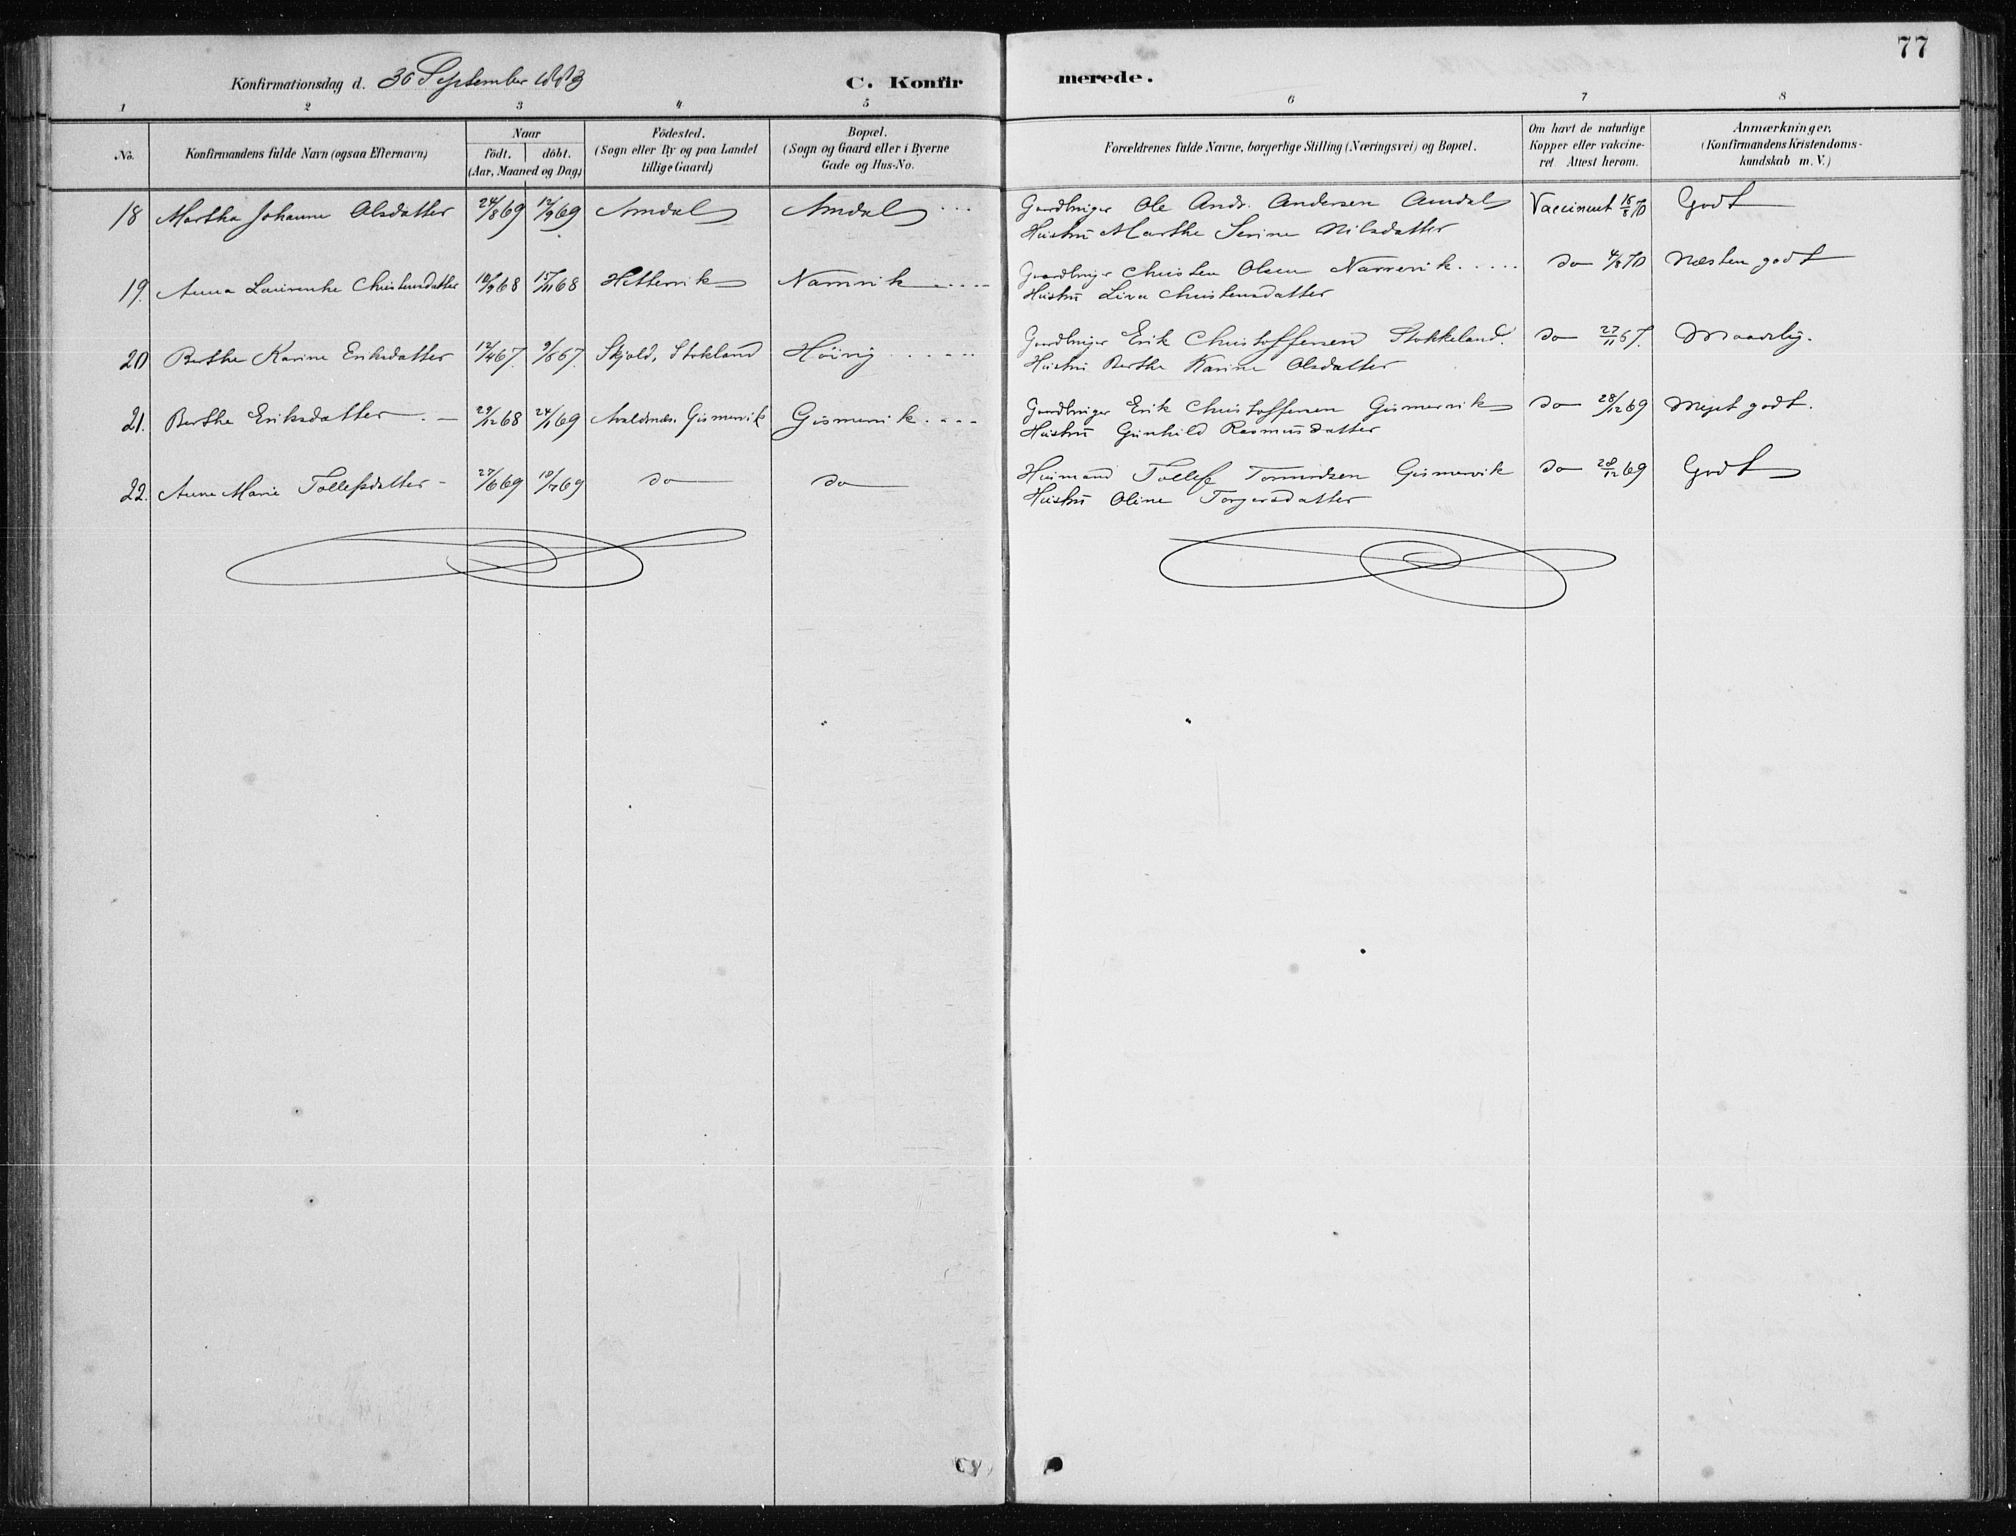 77
Konfirmationsdag d. 30 September 1883
C. Konfirmerede.
1 2 3 4 5 6 7 8
No.
Konfirmandens fulde Navn (ogsaa Efternavn)
Naar
födt. döbt.
(Aar, Maaned og Dag)
Födested.
(Sogn eller By og paa Landet
tillige Gaard)
Bopæl.
(Sogn og Gaard eller i Byerne
Gade og Hus-No.
Forældrenes fulde Navne, borgerlige Stilling (Næringsvei) og Bopæl.
Om havt de naturlige
Kopper eller vakcine-
ret. Attest herom.
Anmærkninger.
(Konfirmandens Kristendoms-
kundskab m. V.)
18 Martha Johanne Olsdatter 24/8 69 12/9 69 Amdal Amdal Gaardbruger Ole Andr. Andersen Amdal Vaccineret 18/8 70 Godt
Hustru Marthe Serine Nilsdatter
19. Anna Laurentse Christensdatter 10/9 68 15/11 68 Hettervik Namrik Gaardbruger Christen Olsen do 4/8 70 Næsten godt
Hustru Lina Christensdatter
20 Berthe Karine Eriksdatter 12/4 67. 9/5 67. Skjold, Stokland Höivig Gaardbruger Erik Christoffersen Stokkeland. do 27/11 67. Maadelig.
Hustru Berthe Karine Olsdatter
21. Berthe Eriksdatter 29/12 68 24/1 69 Avaldsnes, Gismervik Gismervik Gaardbruger Erik Christoffersen Gismervik do 28/12 69 Meget godt.
Hustru Gunhild Rasmusdatter
22. Anne Marie Tollefsdatter 27/6 69 18/7 69 do do Husmand Tollef Tormodsen Gismervik do 28/12 69 Godt
Hustru Oline Torgersdatter